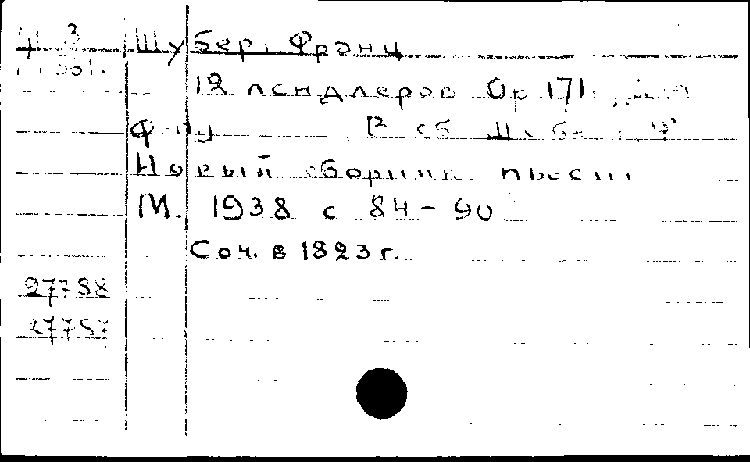 Ц 3
Шубер, Франц
12 лендлеров Op 171
ф-но [В сб. Шуберт
Новый сборник пьес
М. 1938 с 84-90
Соч. в 1823 г.
27788
27787